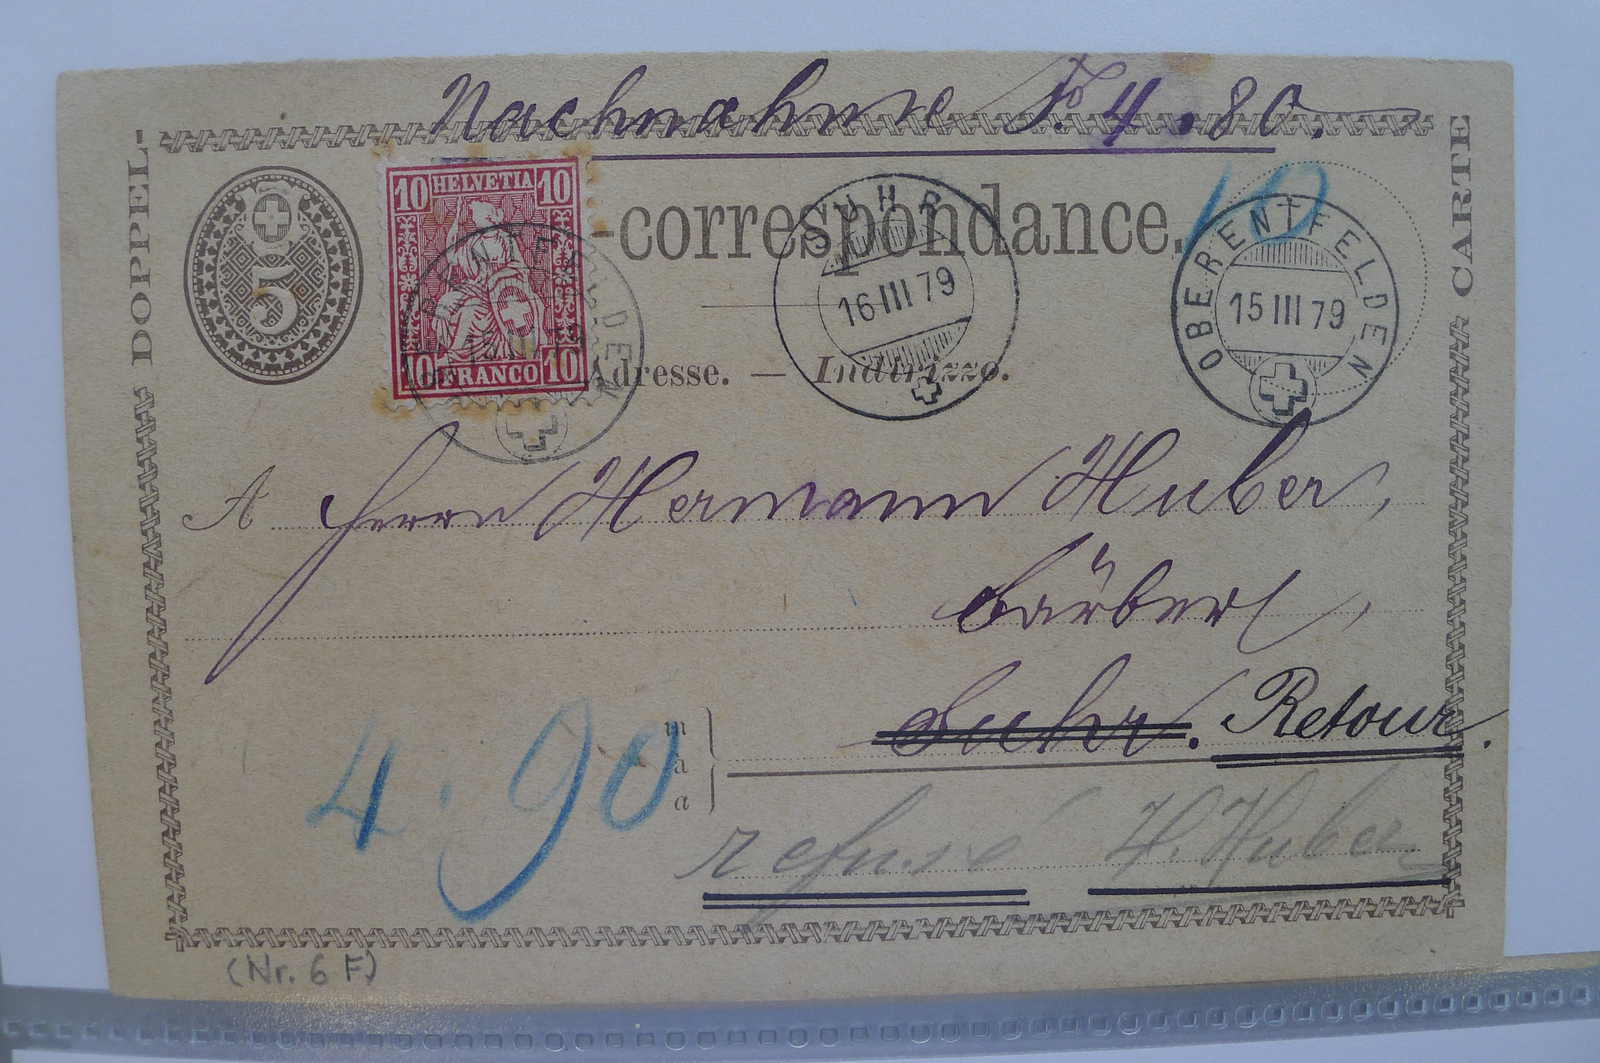 Nachnahme Fo 4.80.
DOPPEL-
CARTE
5
10 HELVETIA 10
10 FRANCO 10
-correspondance.
10
SUHR
16 III 79
OBERENTFELDEN
15 III 79
Adresse. — Indirizzo.
A Herrn Hermann Huber,
Färber,
Suhr. Retour.
4.90
m
a
a
refusé H. Huber
(Nr. 6 F)